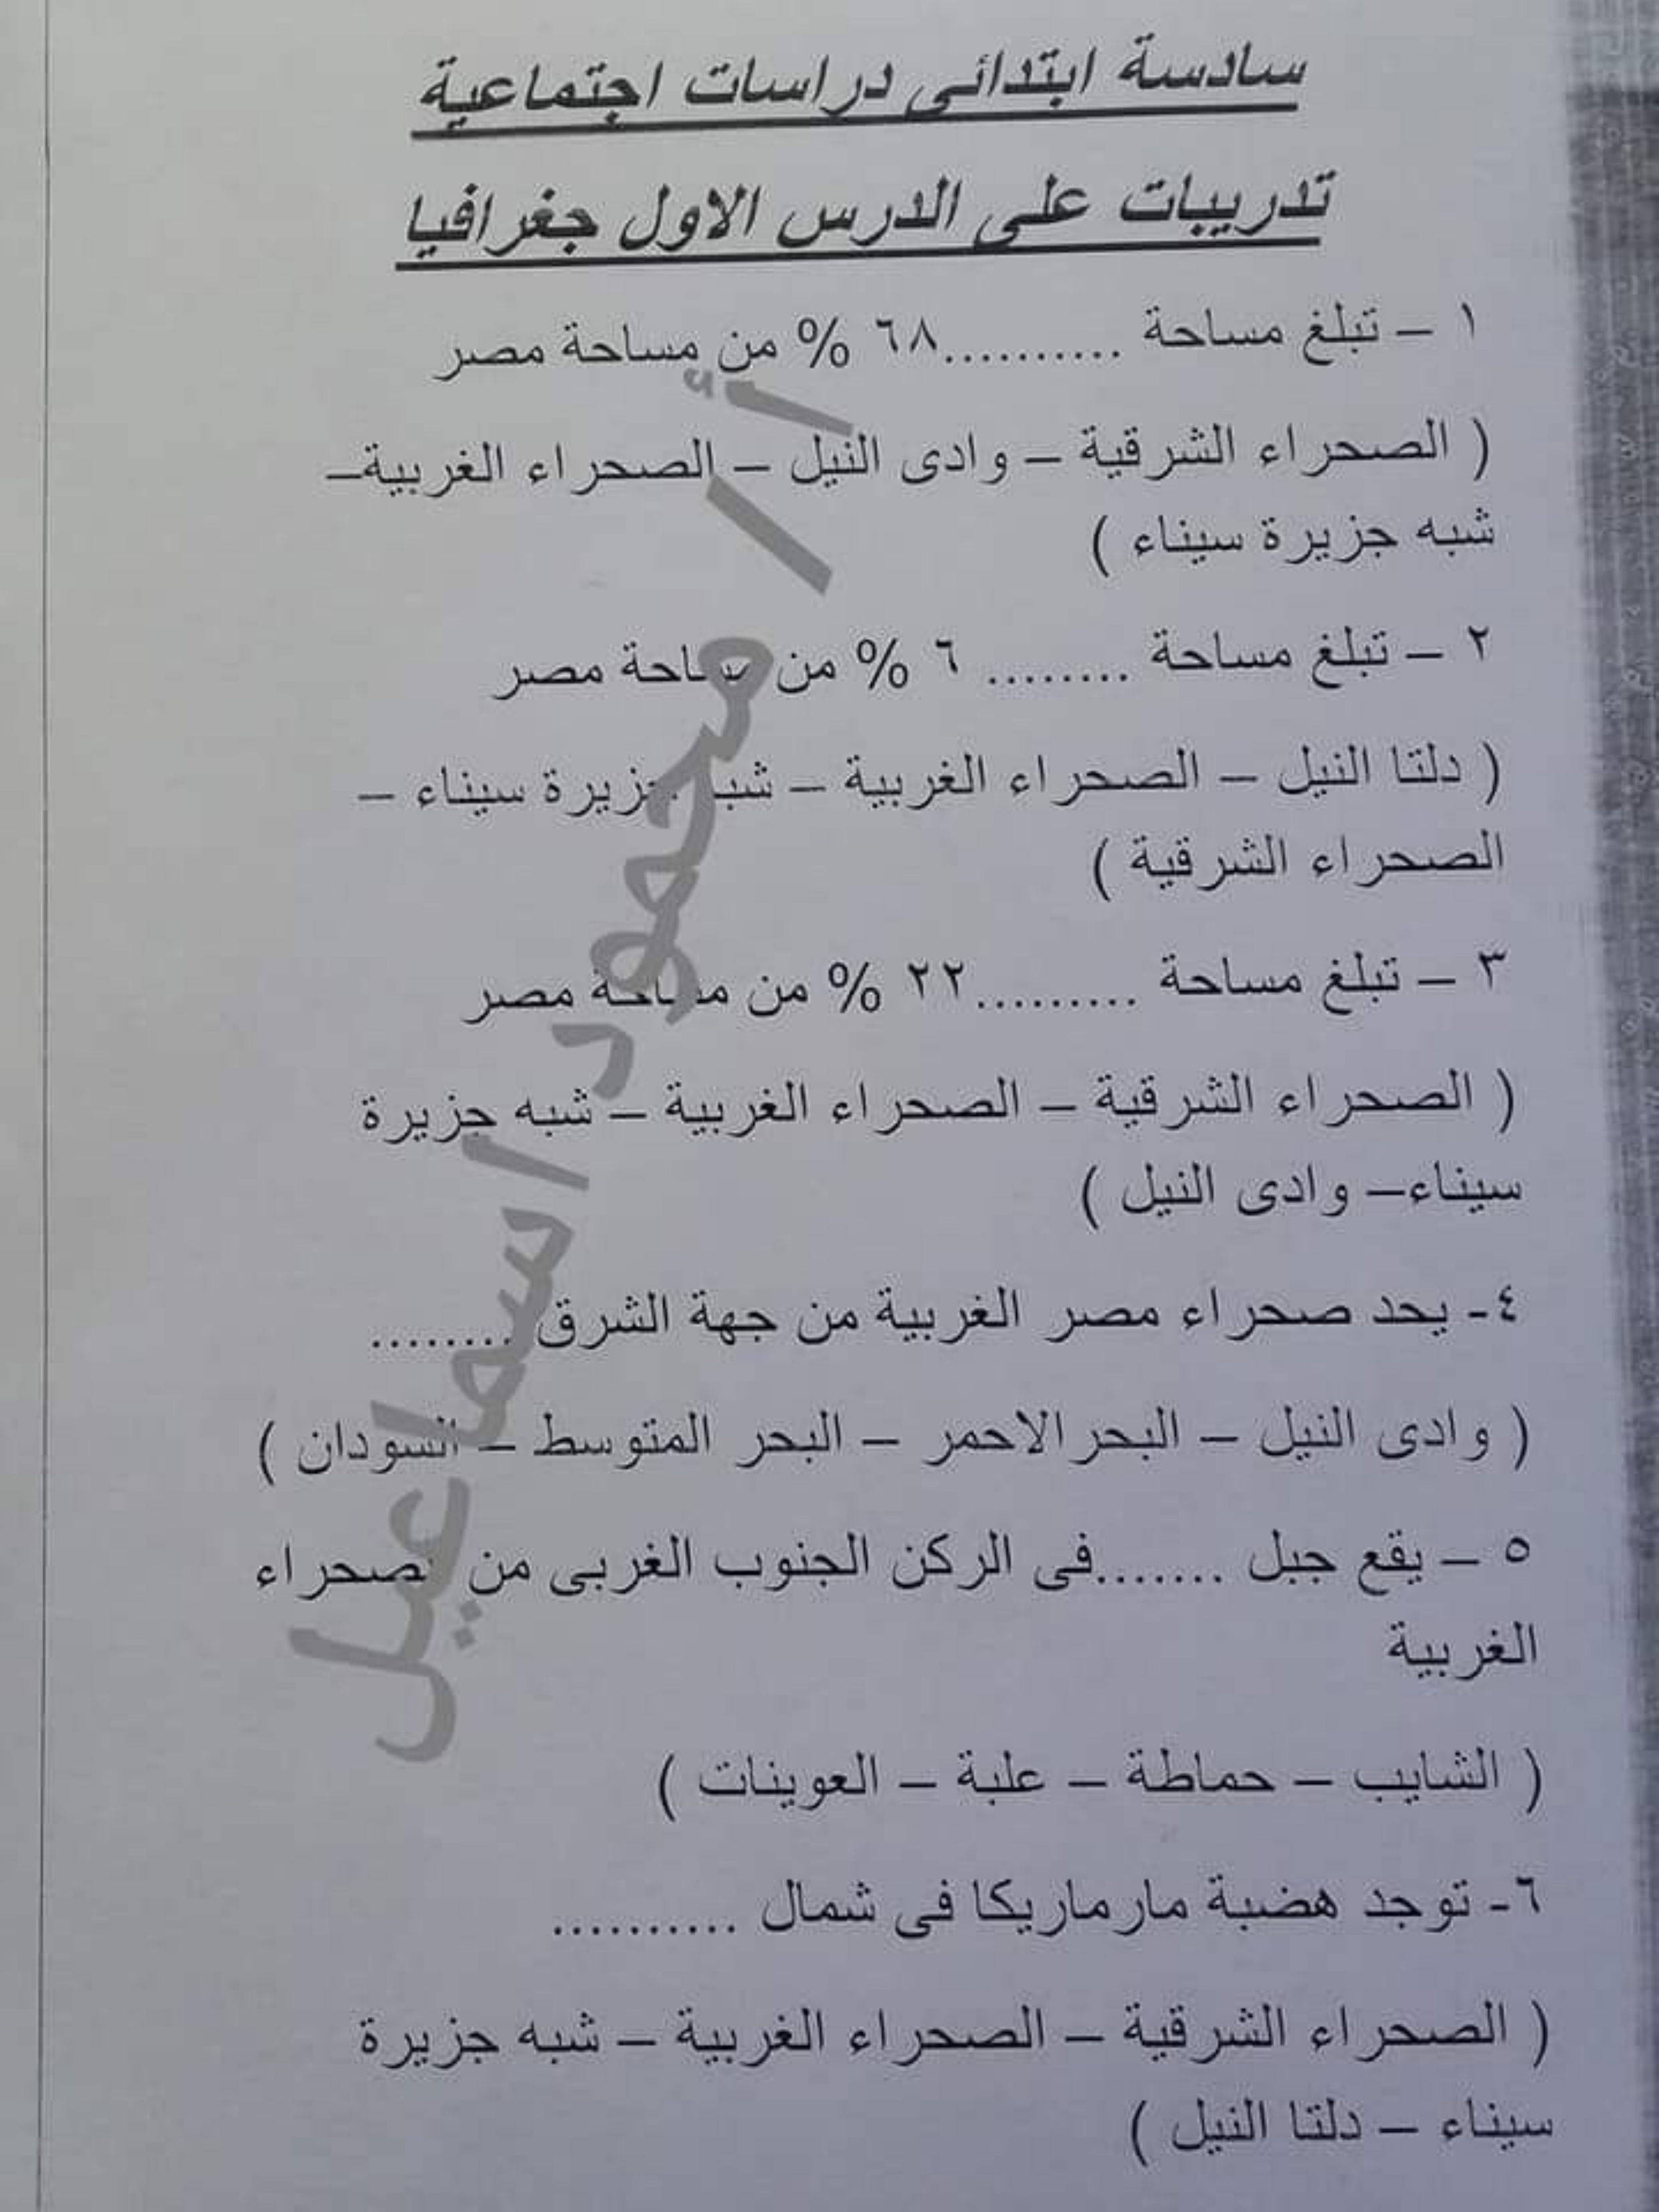 سادسة ابتدائى دراسات اجتماعية
تدريبات على الدرس الاول جغرافيا
١ – تبلغ مساحة ..........٦٨ % من مساحة مصر
( الصحراء الشرقية – وادى النيل – الصحراء الغربية–
شبه جزيرة سيناء )
٢ – تبلغ مساحة ........ ٦ % من مساحة مصر
( دلتا النيل – الصحراء الغربية – شبه جزيرة سيناء –
الصحراء الشرقية )
٣ – تبلغ مساحة .........٢٢ % من مساحة مصر
( الصحراء الشرقية – الصحراء الغربية – شبه جزيرة
سيناء– وادى النيل )
٤- يحد صحراء مصر الغربية من جهة الشرق ........
( وادى النيل – البحر الاحمر – البحر المتوسط – السودان )
٥ – يقع جبل .......فى الركن الجنوب الغربى من الصحراء
الغربية
( الشايب – حماطة – علبة – العوينات )
٦- توجد هضبة مارماريكا فى شمال ..........
( الصحراء الشرقية – الصحراء الغربية – شبه جزيرة
سيناء – دلتا النيل )
أ/ محمود اسماعيل